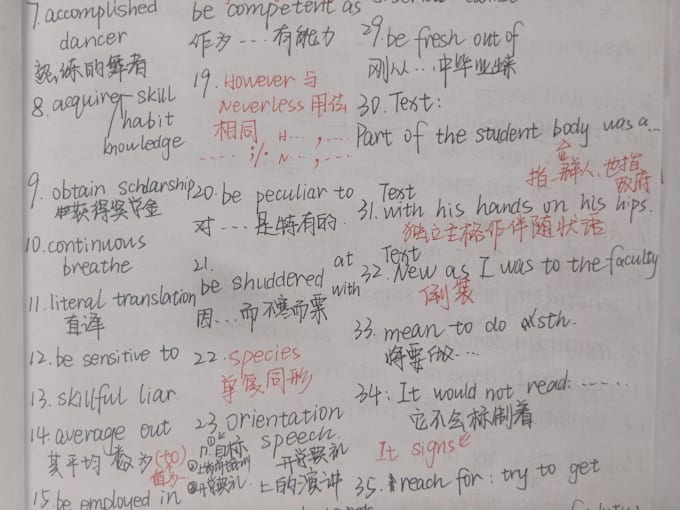 7. accomplished
dancer
熟练的舞者
8. acquire skill
habit
knowledge
9. obtain scholarship
获得奖学金
10. continuous
breathe
11. literal translation
直译
12. be sensitive to
13. skillful liar
14. average out
其平均数为(to)
值为…
15. be employed in
be competent as
作为…有能力
19. However与
Neverless用法
相同 H…, …
…; N…, …
20. be peculiar to
对…是特有的.
21.
be shuddered at
with
因…而不寒而栗
22. species
单复同形
23. orientation
speech.
n.①目标
②上岗前培训
③开学典礼.
开学典礼
上的演讲
29. be fresh out of
刚从…中毕业出来
30. Text:
Part of the student body was a…
指一群人,也指
政府
Text
31. with his hands on his hips.
独立主格作伴随状语
Text
32. New as I was to the faculty
倒装
33. mean to do sth.
将要做…
34: It would not read: ……
它不会标制着
It signs
35. reach for: try to get